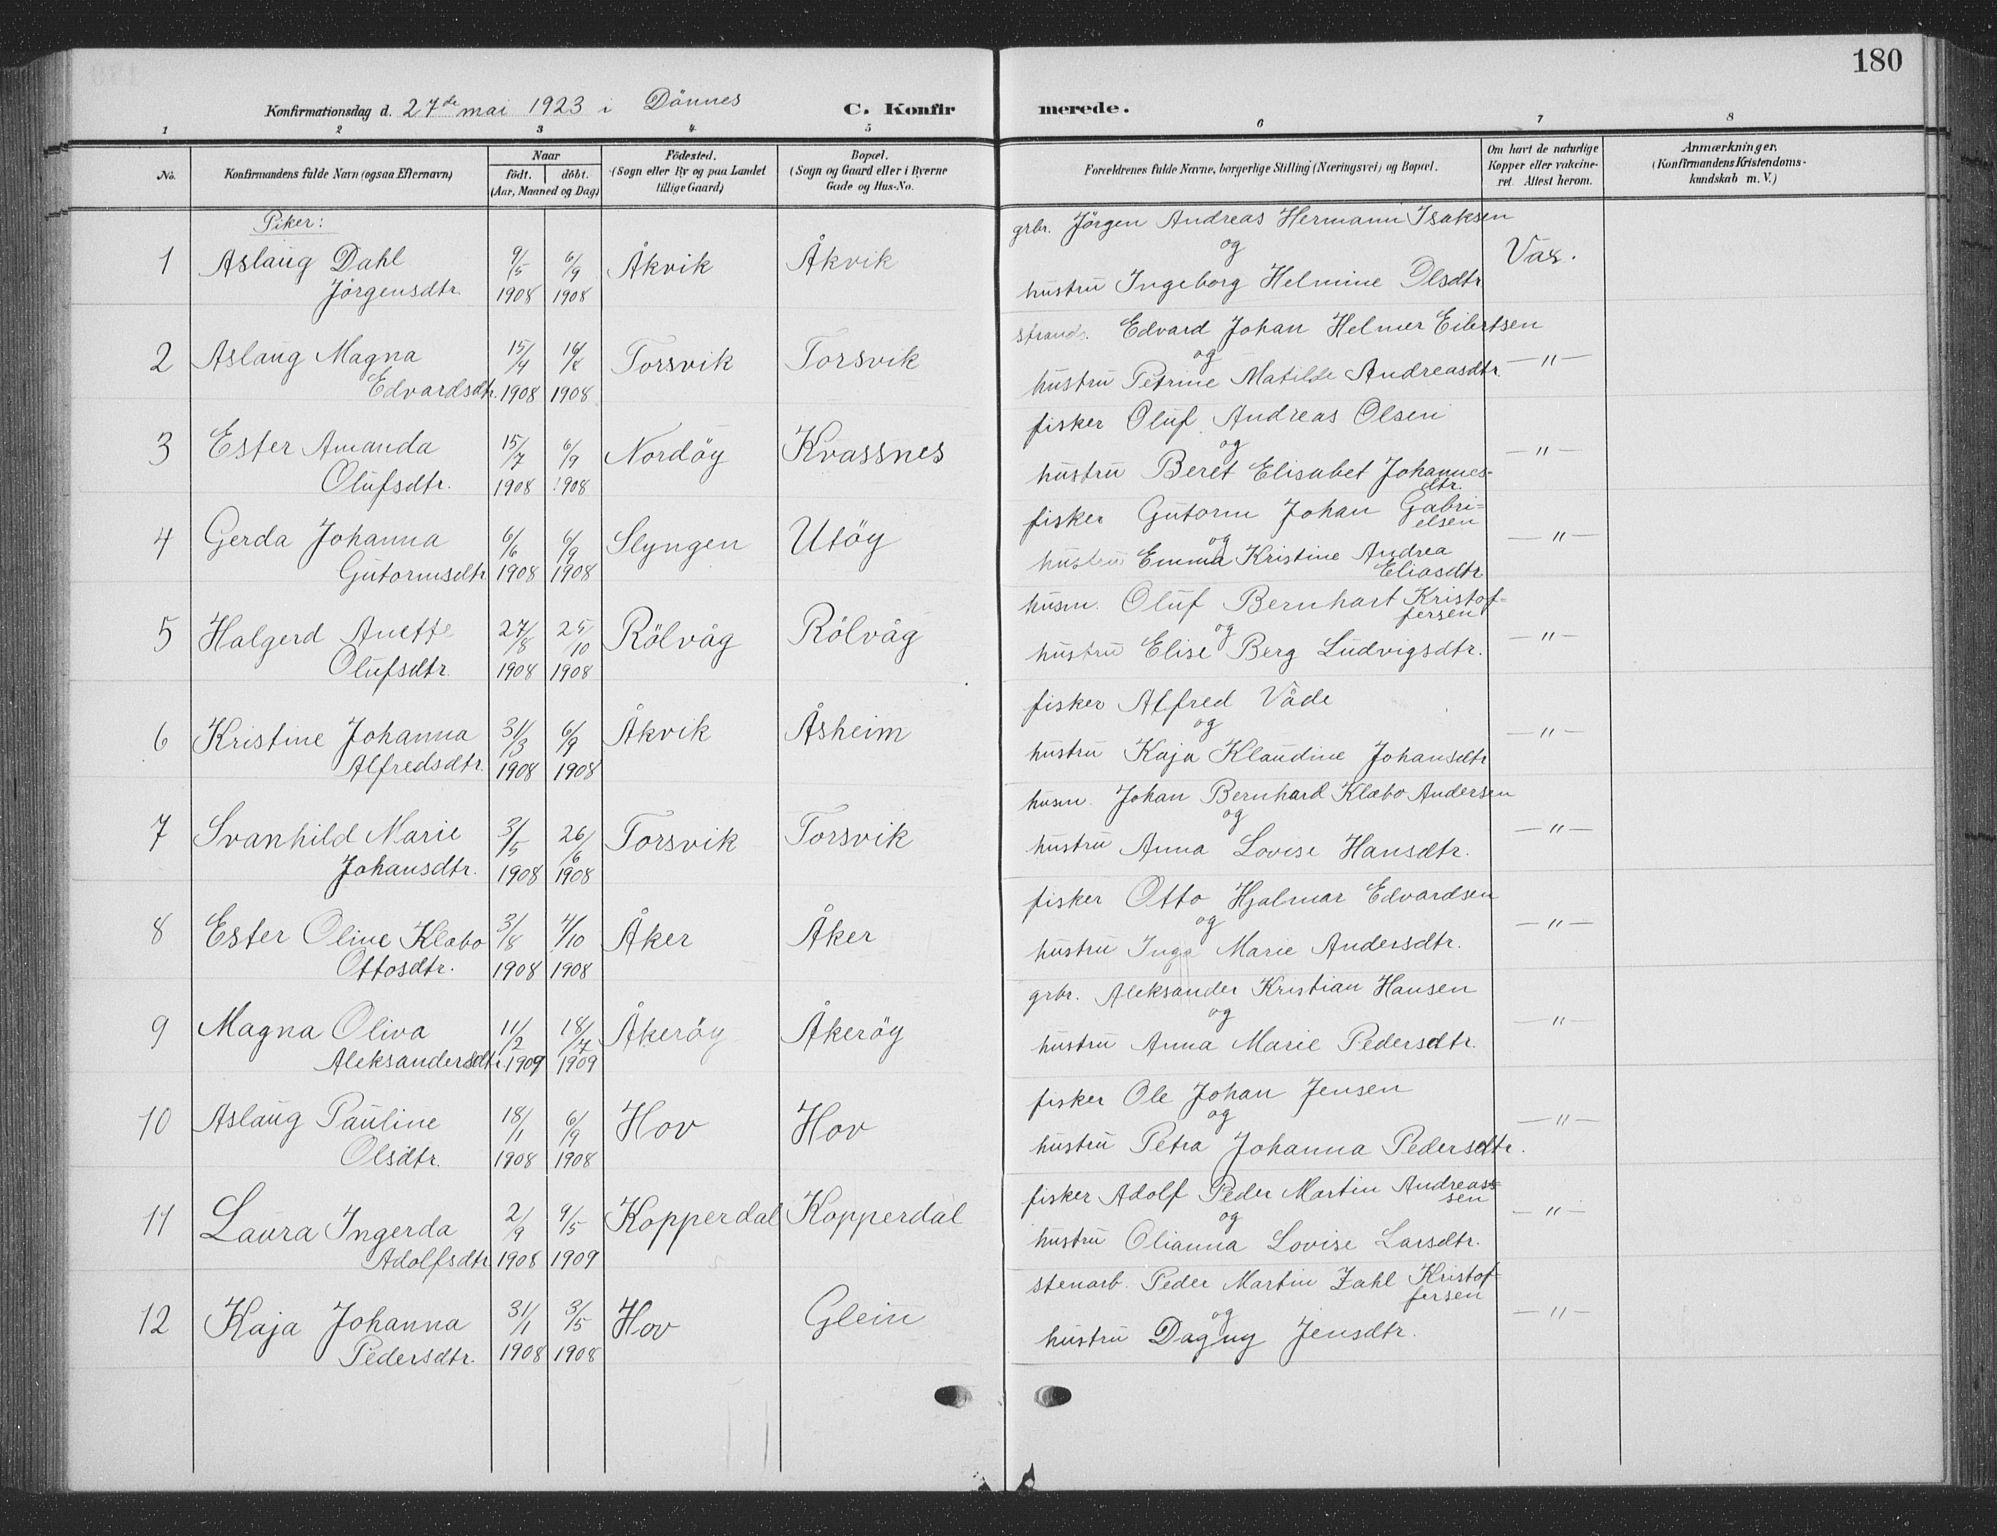 180
Konfirmationsdag d. 27de mai 1923 i Dönnes C. Konfirmerede.
1 2 3 4 5 6 7 8
No. Konfirmandens fulde Navn (ogsaa Efternavn) Naar födt. döbt. (Aar, Maaned og Dag) Födested. (Sogn eller By og paa Landet tillige Gaard) Bopæl. (Sogn og Gaard eller i Byerne Gade og Hus-No. Forældrenes fulde Navne, borgerlige Stilling (Næringsvei) og Bopæl. Om havt de naturlige Kopper eller vakcineret. Attest herom. Anmærkninger. (Konfirmandens Kristendomskundskab m. V.)
Piker:
1 Aslaug Dahl Jörgensdtr. 9/5 1908 6/9 1908 Åkvik Åkvik
grbr. Jörgen Andreas Hermann Isaksen
og
hustru Ingeborg Helmine Olsdtr Vax.
2 Aslaug Magna Edvardsdtr. 15/4 1908 1908 Torsvik Torsvik
strands. Edvard Johan Helmer Eilertsen
og
hustru Petrine Matilde Andreasdtr. —"—
3 Ester Amanda Olufsdtr. 15/7 1908 6/9 1908 Nordöy Kvassnes
fisker Oluf Andreas Olsen
og
hustru Beret Elisabet Johannesdtr. —"—
4 Gerda Johanna Gutormsdtr 6/6 1908 6/9 1908 Slyngen Utöy
fisker Gutorm Johan Gabrielsen
og
hustru Emma Kristine Andrea Eliasdtr —"—
5 Halgerd Anette Olufsdtr. 27/8 1908 25/10 1908 Rölvåg Rölvåg
husm. Oluf Bernhart Kristoffersen
og
hustru Elise Berg Ludvigsdtr. —"—
6 Kristine Johanna Alfredsdtr. 31/3 1908 6/9 1908 Åkvik Åsheim
fisker Alfred Våde
og
hustru Kaja Klaudine Johansdtr —"—
7 Svanhild Marie Johansdtr. 3/5 1908 26/6 1908 Torsvik Torsvik
husm. Johan Bernhard Klæbo Andersen
og
hustru Anna Lovise Hansdtr. —"—
8 Ester Oline Klæbo Ottosdtr. 3/8 1908 4/10 1908 Åker Åker
fisker Otto Hjalmar Edvardsen
og
hustru Inga Marie Andersdtr. —"—
9 Magna Oliva Aleksandersdtr. 11/2 1909 18/7 1909 Åkeröy Åkeröy
grbr. Aleksander Kristian Hansen
og
hustru Anna Marie Pedersdtr. —"—
10 Aslaug Pauline Olsdtr. 18/1 1908 6/9 1908 Hov Hov
fisker Ole Johan Jensen
og
hustru Petra Johanna Pedersdtr. —"—
11 Laura Ingerda Adolfsdtr 2/9 1908 9/5 1909 Kopperdal Kopperdal
fisker Adolf Peder Martin Andreassen
og
hustru Olianna Lovise Larsdtr. —"—
12 Kaja Johanna Pedersdtr. 31/1 1908 3/5 1908 Hov Glein
stenarb. Peder Martin Zahl Kristoffersen
og
hustru Dagny Jensdtr. —"—